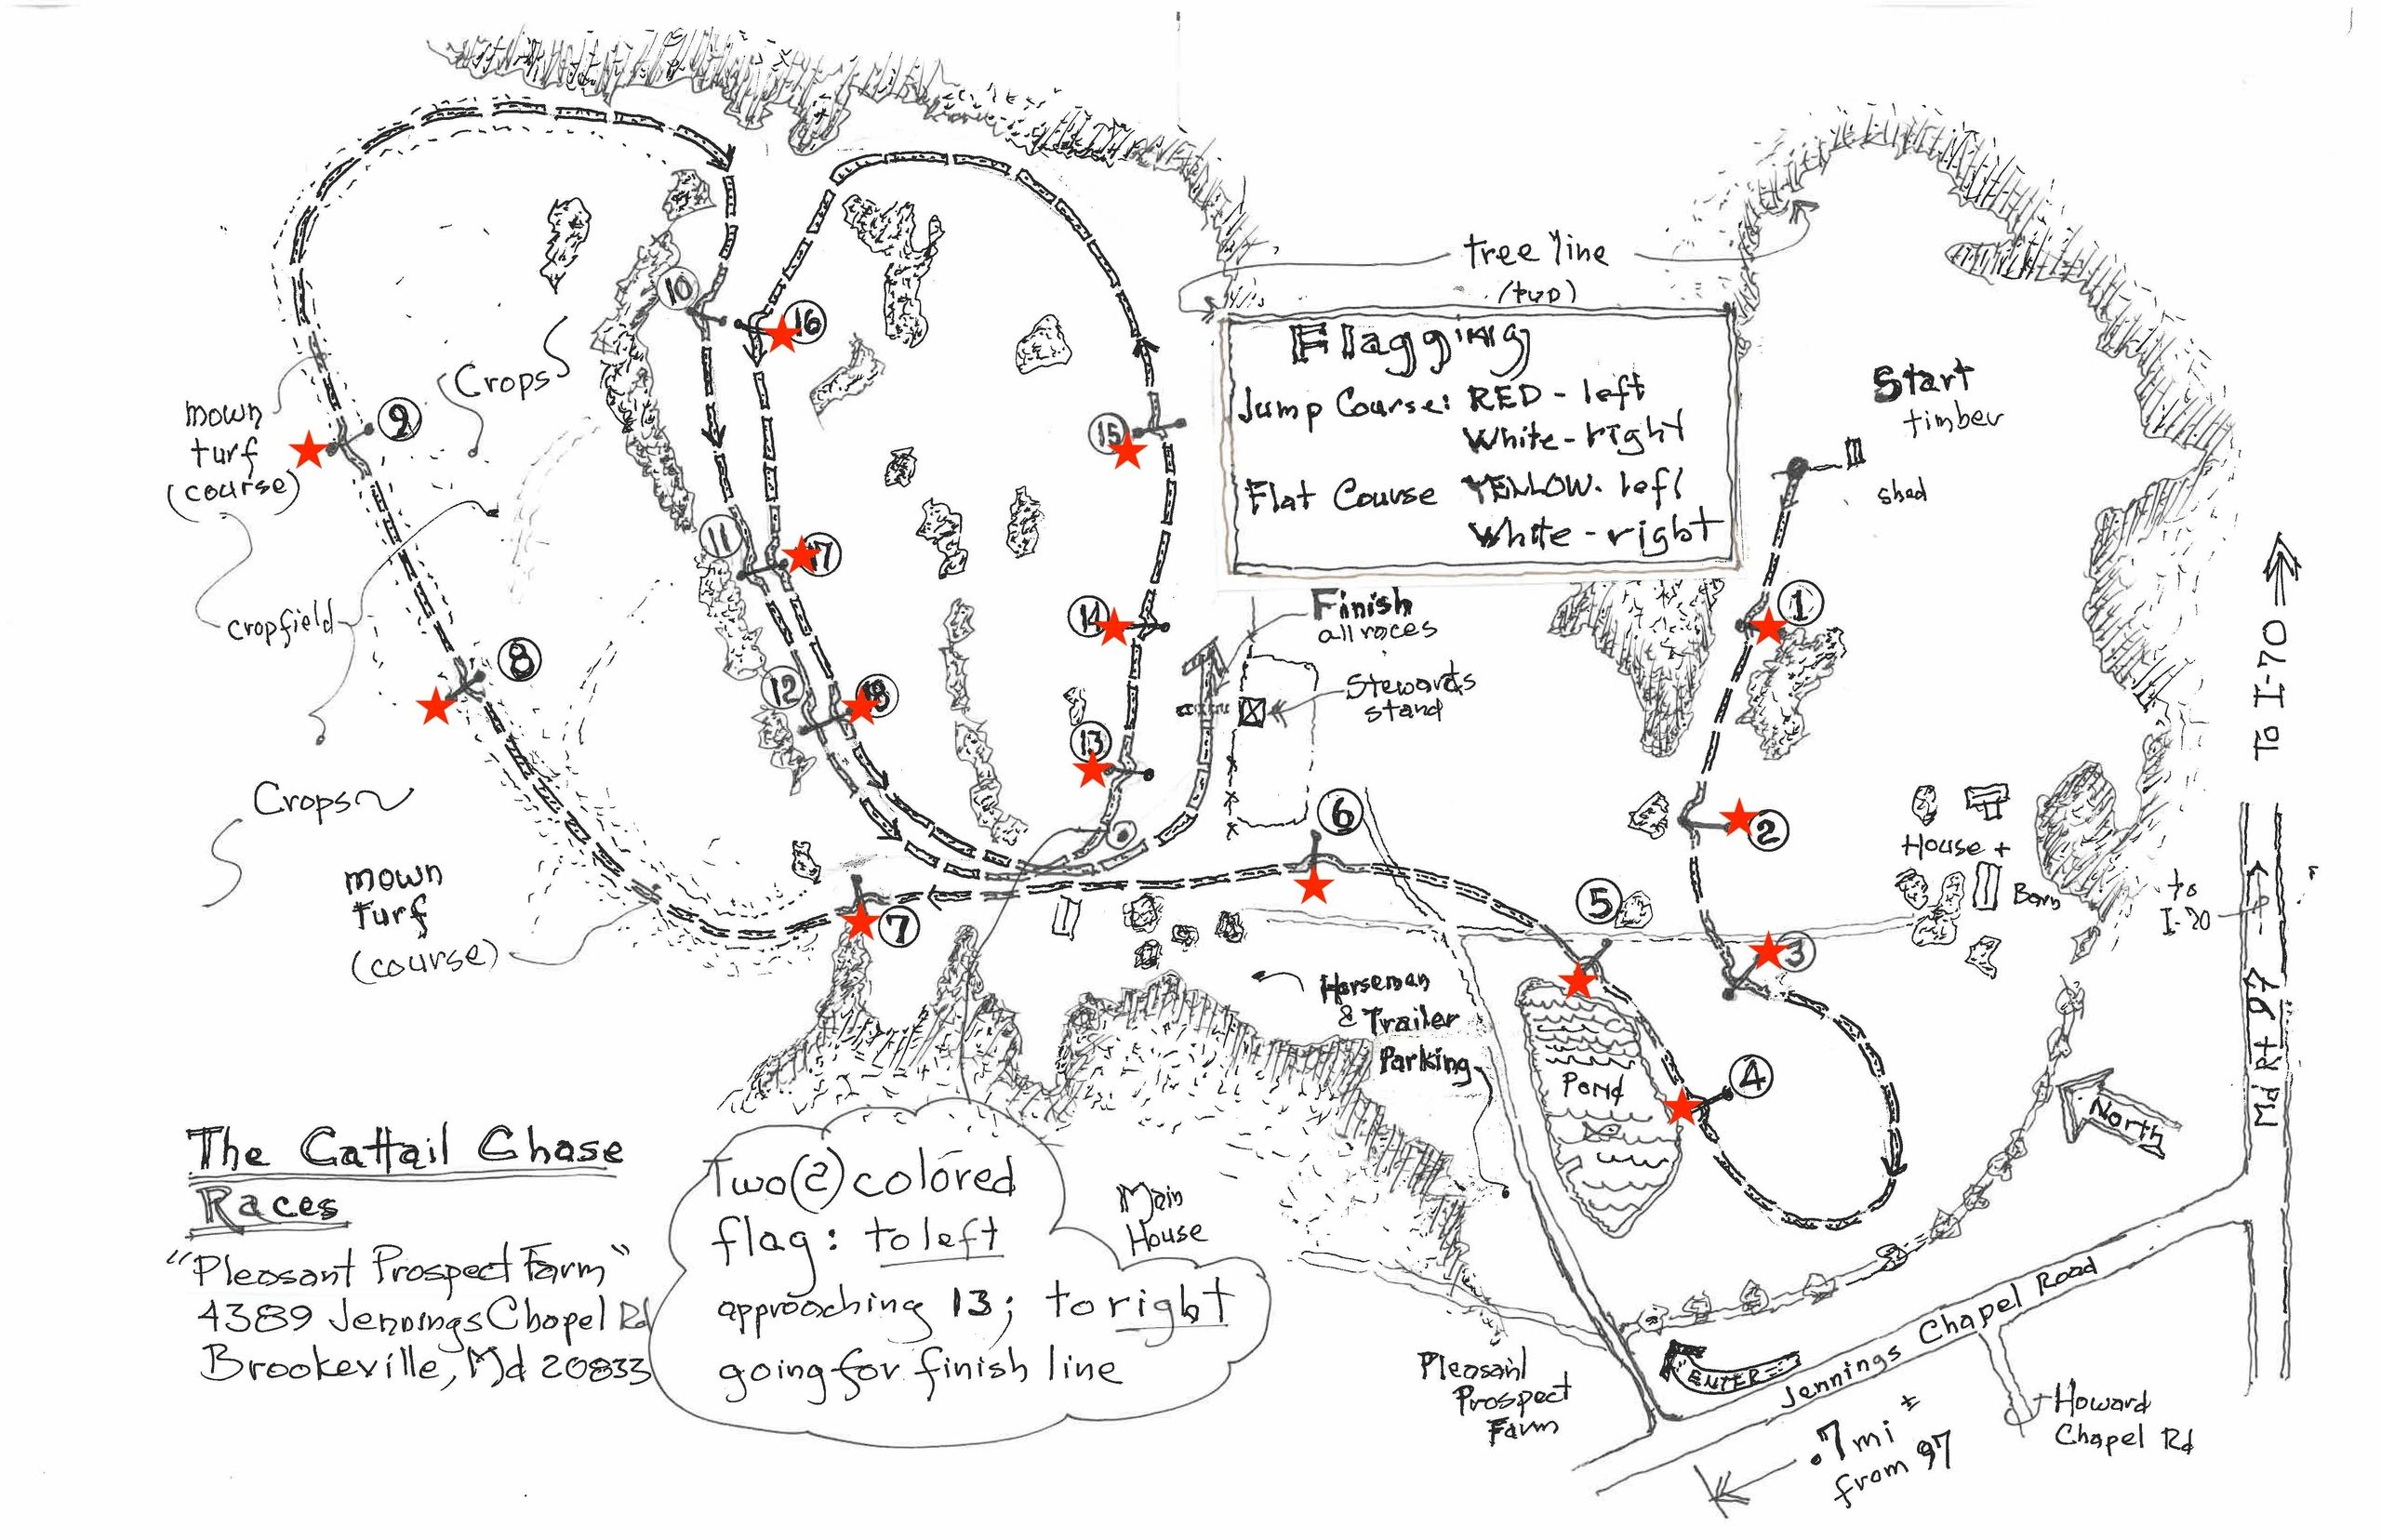 tree line
(typ)
Flagging
Jump Course: RED - left
White - right
Flat Course YELLOW. left
White - right
Start
timber
shed
Crops
mown
turf
(course)
cropfield
Crops~
mown
turf
(course)
10
16
9
15
11
17
14
1
8
12
18
13
6
2
7
5
3
4
Finish
all races
Stewards
stand
House +
Barn
to
I-70
To I-70
Md Rt 97
North
Horseman
& Trailer
Parking
Pond
The Cattail Chase
Races
"Pleasant Prospect Farm"
4389 Jennings Chapel Rd
Brookeville, Md 20833
Two (2) colored
flag: to left
approaching 13; to right
going for finish line
Main
House
Pleasant
Prospect
Farm
ENTER
Jennings Chapel Road
Howard
Chapel Rd
.7 mi ±
from 97